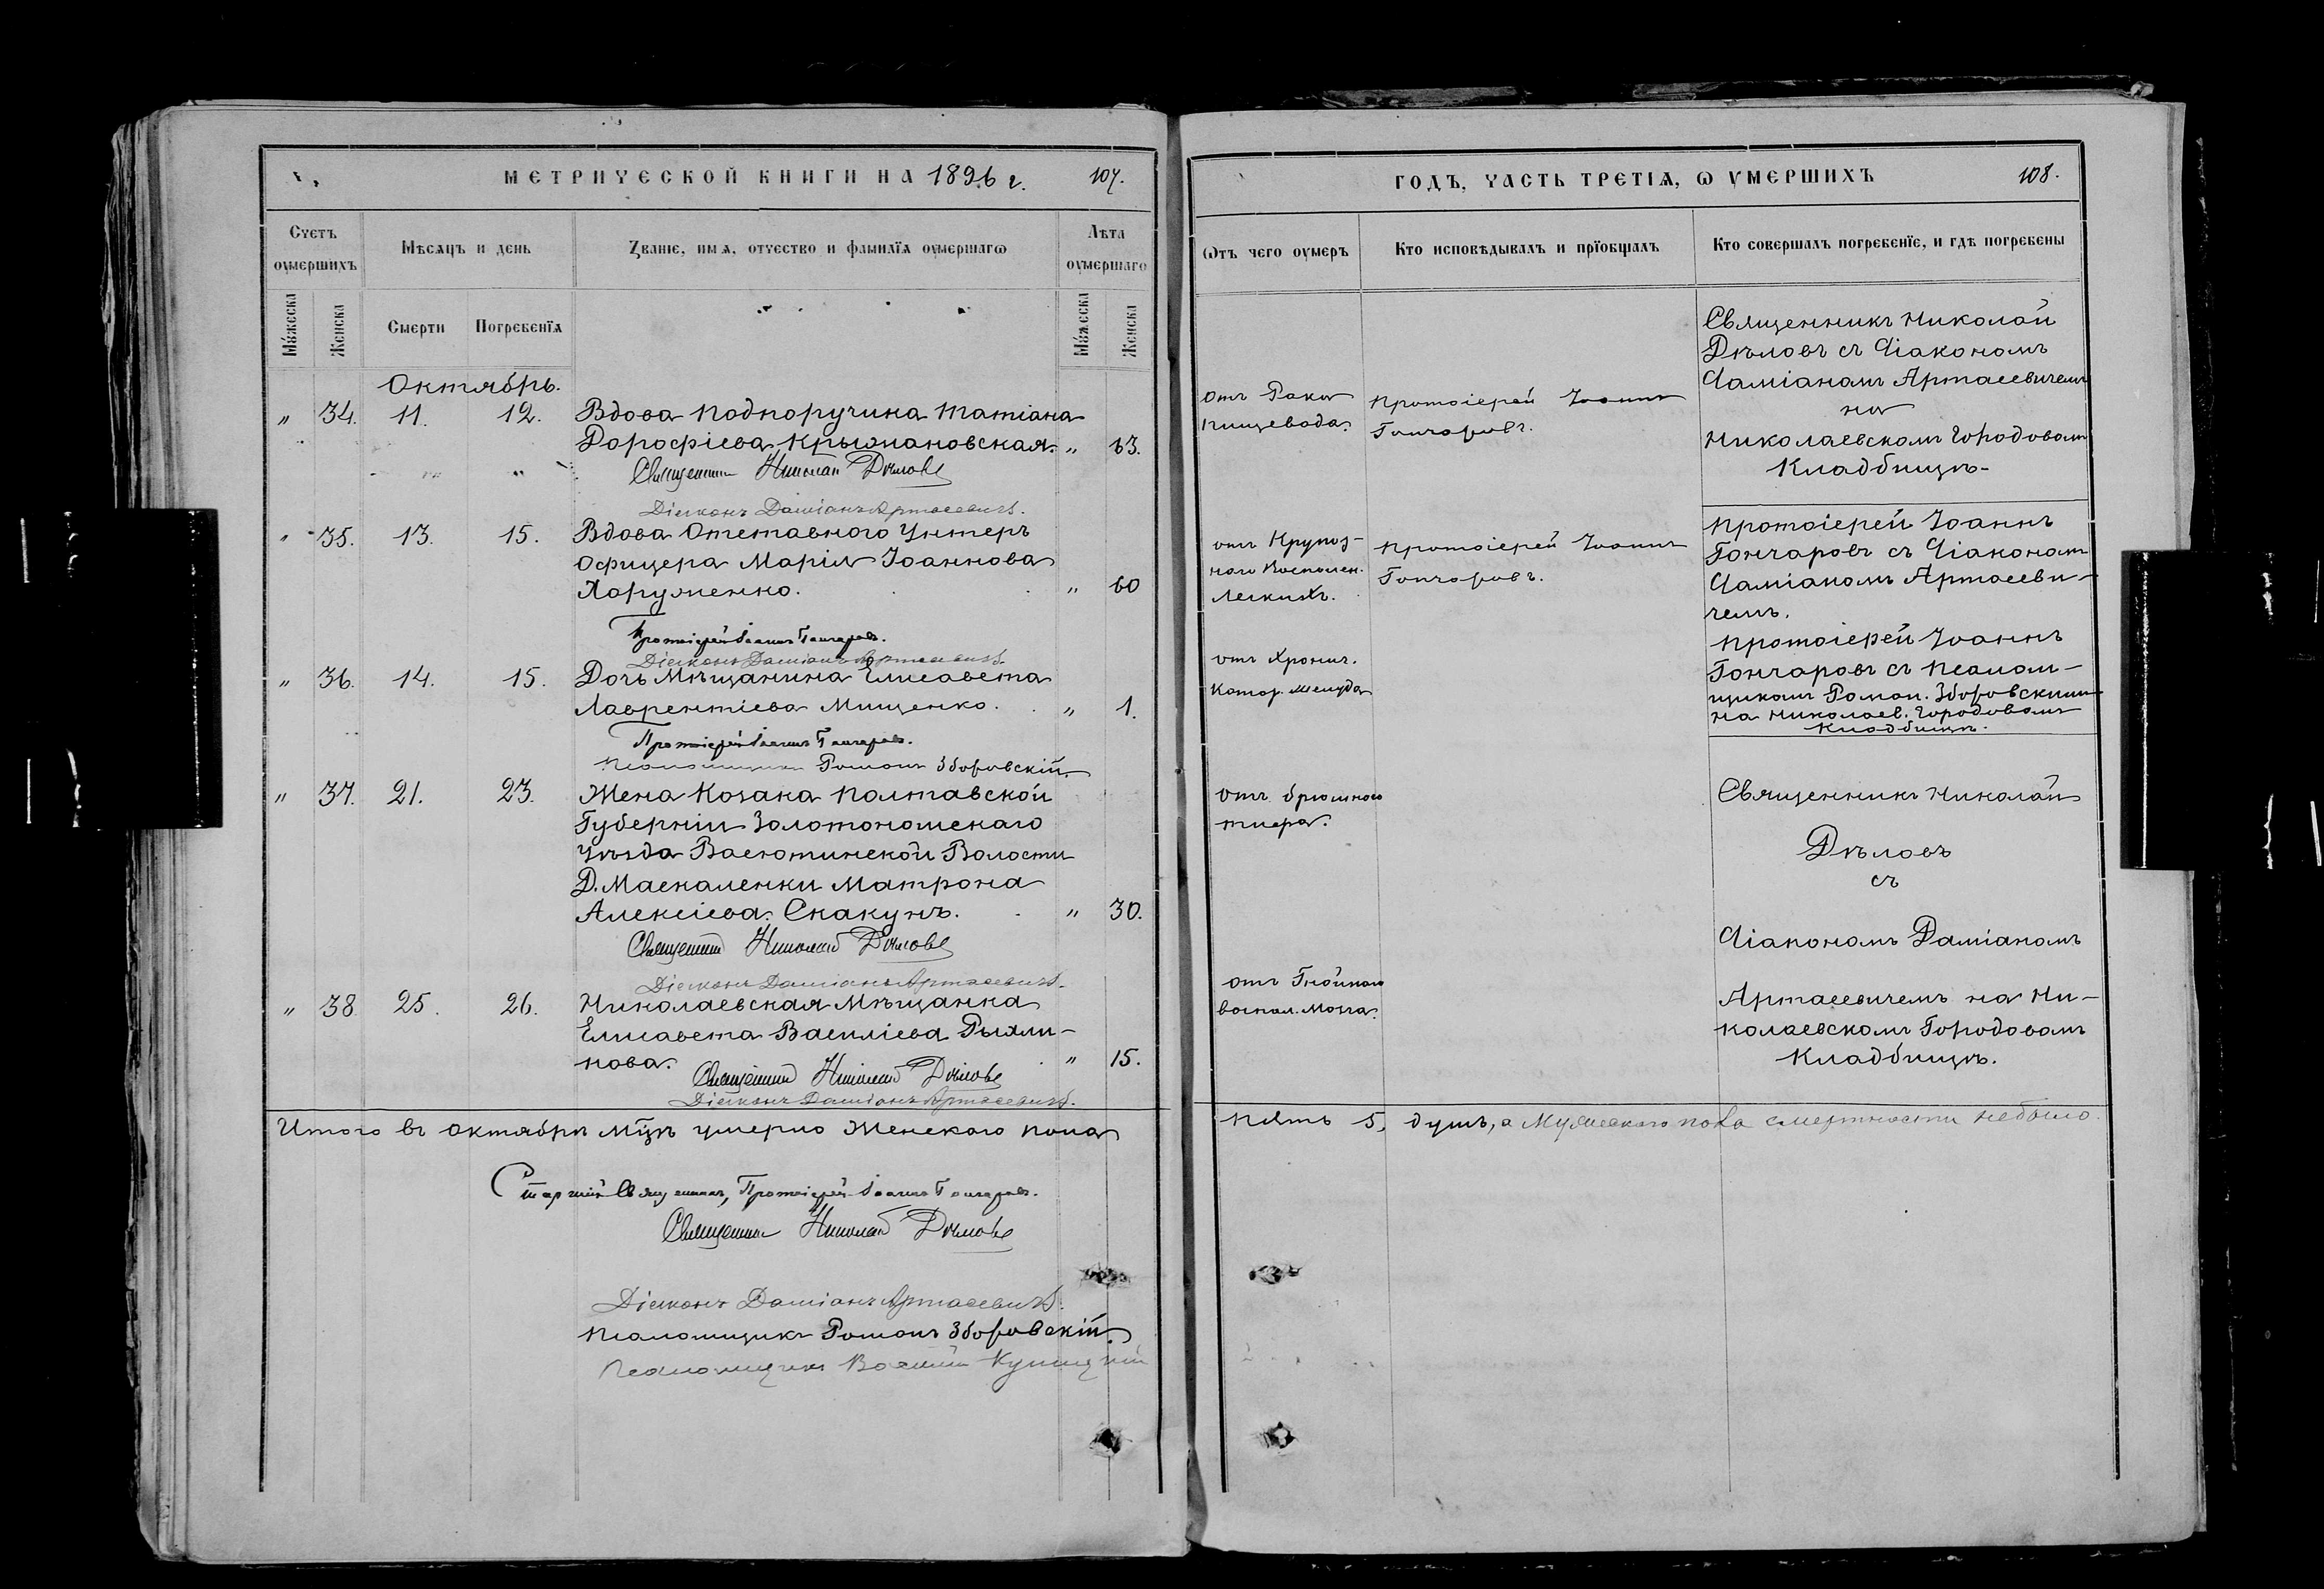 МЕТРИЧЕСКОЙ КНИГИ НА 1896 г.
107.
Счетъ оумершихъ
Мѣсяцъ и день
Званіе, имя, отчество и фамилїа оумершагѡ
Лѣта оумершаго
Мꙋжеска
Женска
Смерти
Погребенїя
Мꙋжеска
Женска
Октябрь.
„ 34. 11. 12. Вдова Подпоручика Татіана
Дорофіева Крыжановская. „ 63.
Священникъ Николай Дѣловъ
Діаконъ Даміанъ Артасевичъ.
„ 35. 13. 15. Вдова Отставного Унтеръ
Офицера Марія Іоаннова
Хоруженко. „ 60
Протоіерей Іоаннъ Гончаровъ.
Діаконъ Даміанъ Артасевичъ.
„ 36. 14. 15. Дочь Мѣщанина Елисавета
Лаврентіева Мищенко. „ 1.
Протоіерей Іоаннъ Гончаровъ.
Псаломщикъ Романъ Зборовскій.
„ 37. 21. 23. Жена Козака Полтавской
Губерніи Золотоношскаго
Уѣзда Васютинской Волости
Д. Маскаленки Матрона
Алексіева Скакунъ. „ 30.
Священникъ Николай Дѣловъ
Діаконъ Даміанъ Артасевичъ.
„ 38 25. 26. Николаевская Мѣщанка
Елисавета Василіева
нова. „ 15.
Священникъ Николай Дѣловъ
Діаконъ Даміанъ Артасевичъ.
Итого въ Октябрѣ Мцѣ умерло Женскаго пола
Старшій Священникъ, Протоіерей Іоаннъ Гончаровъ.
Священникъ Николай Дѣловъ
Діаконъ Даміанъ Артасевичъ.
Псаломщикъ Романъ Зборовскій.
Псаломщикъ
ГОДЪ, ЧАСТЬ ТРЕТІѦ, Ѡ УМЕРШИХЪ
108.
Ѿтъ чего оумеръ
Кто исповѣдывалъ и прїобщалъ
Кто совершалъ погребенїе, и гдѣ погребены
отъ Рака
пищевода.
Протоіерей Іоаннъ
Гончаровъ.
Священникъ Николай
Дѣловъ съ Діакономъ
Даміаномъ Артасевичемъ
на
Николаевскомъ Городовомъ
Кладбищѣ.
отъ Крупоз-
наго Воспален.
Легкихъ.
Протоіерей Іоаннъ
Гончаровъ.
Протоіерей Іоаннъ
Гончаровъ съ Діакономъ
Даміаномъ Артасеви-
чемъ.
отъ Хронич.
Катар. желудка
Протоіерей Іоаннъ
Гончаровъ съ Псалом-
щикомъ Роман. Зборовскимъ
на Николаев. Городовомъ
Кладбищѣ.
отъ брюшного
тифа.
Священникъ Николай
Дѣловъ
съ
Діакономъ Даміаномъ
отъ Гнойнаго
воспал. Мозга.
Артасевичемъ на Ни-
колаевскомъ Городовомъ
Кладбищѣ.
Пять 5, душъ, а Мужескаго пола смертности небыло.